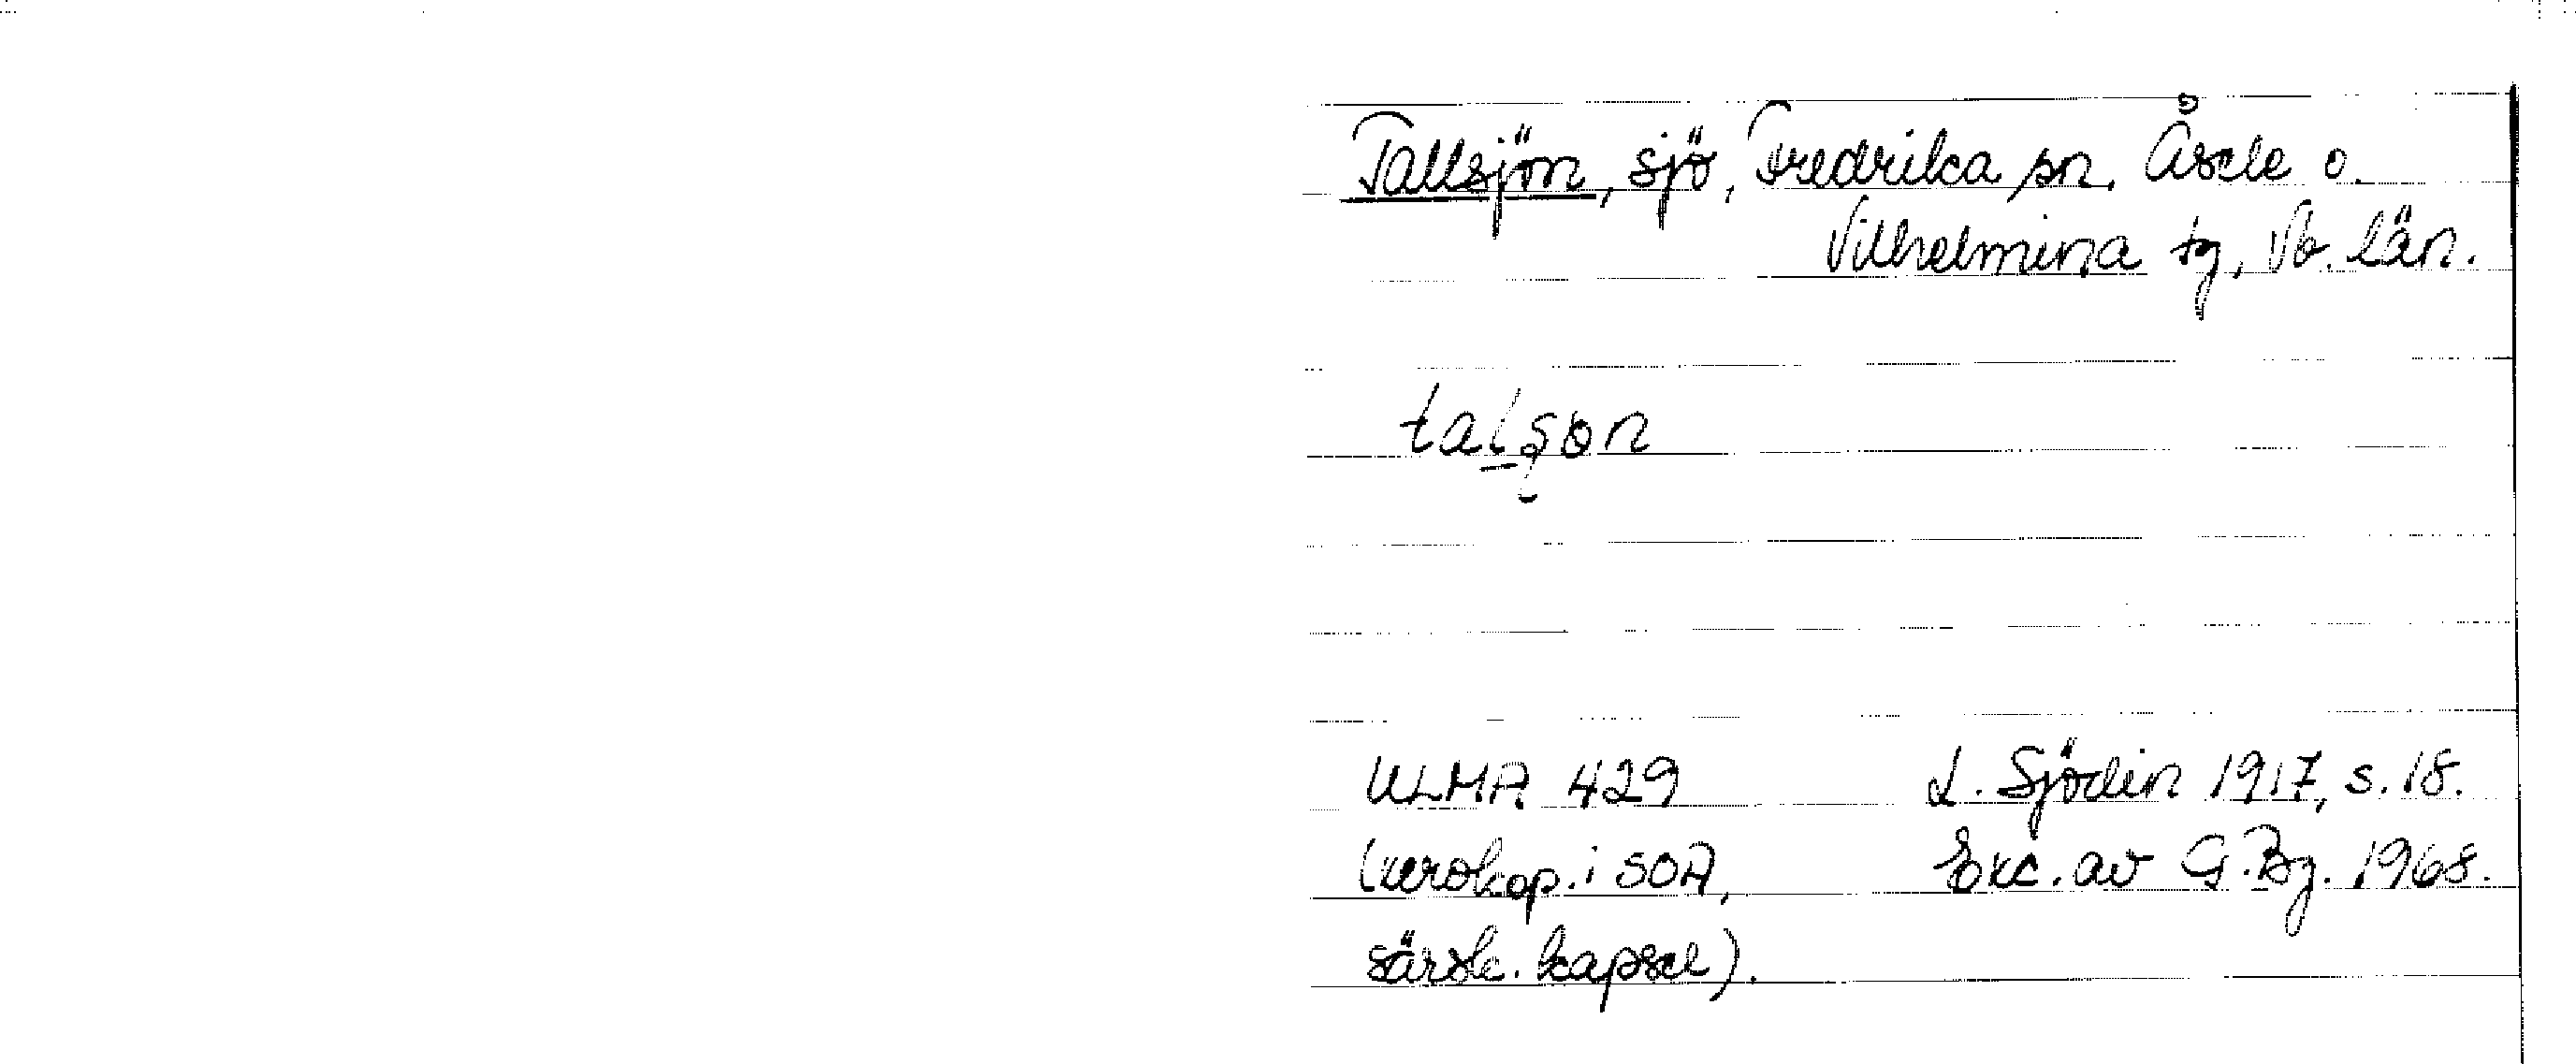 Tallsjön, sjö, Fredrika sn, Åsele o.
Vilhelmina tg, Vb. län.
talșon
ULMA 429 L. Sjödin 1917, s. 18.
(xerokop. i SOA, Exc. av G. Bg. 1968.
särsk. kapsel).